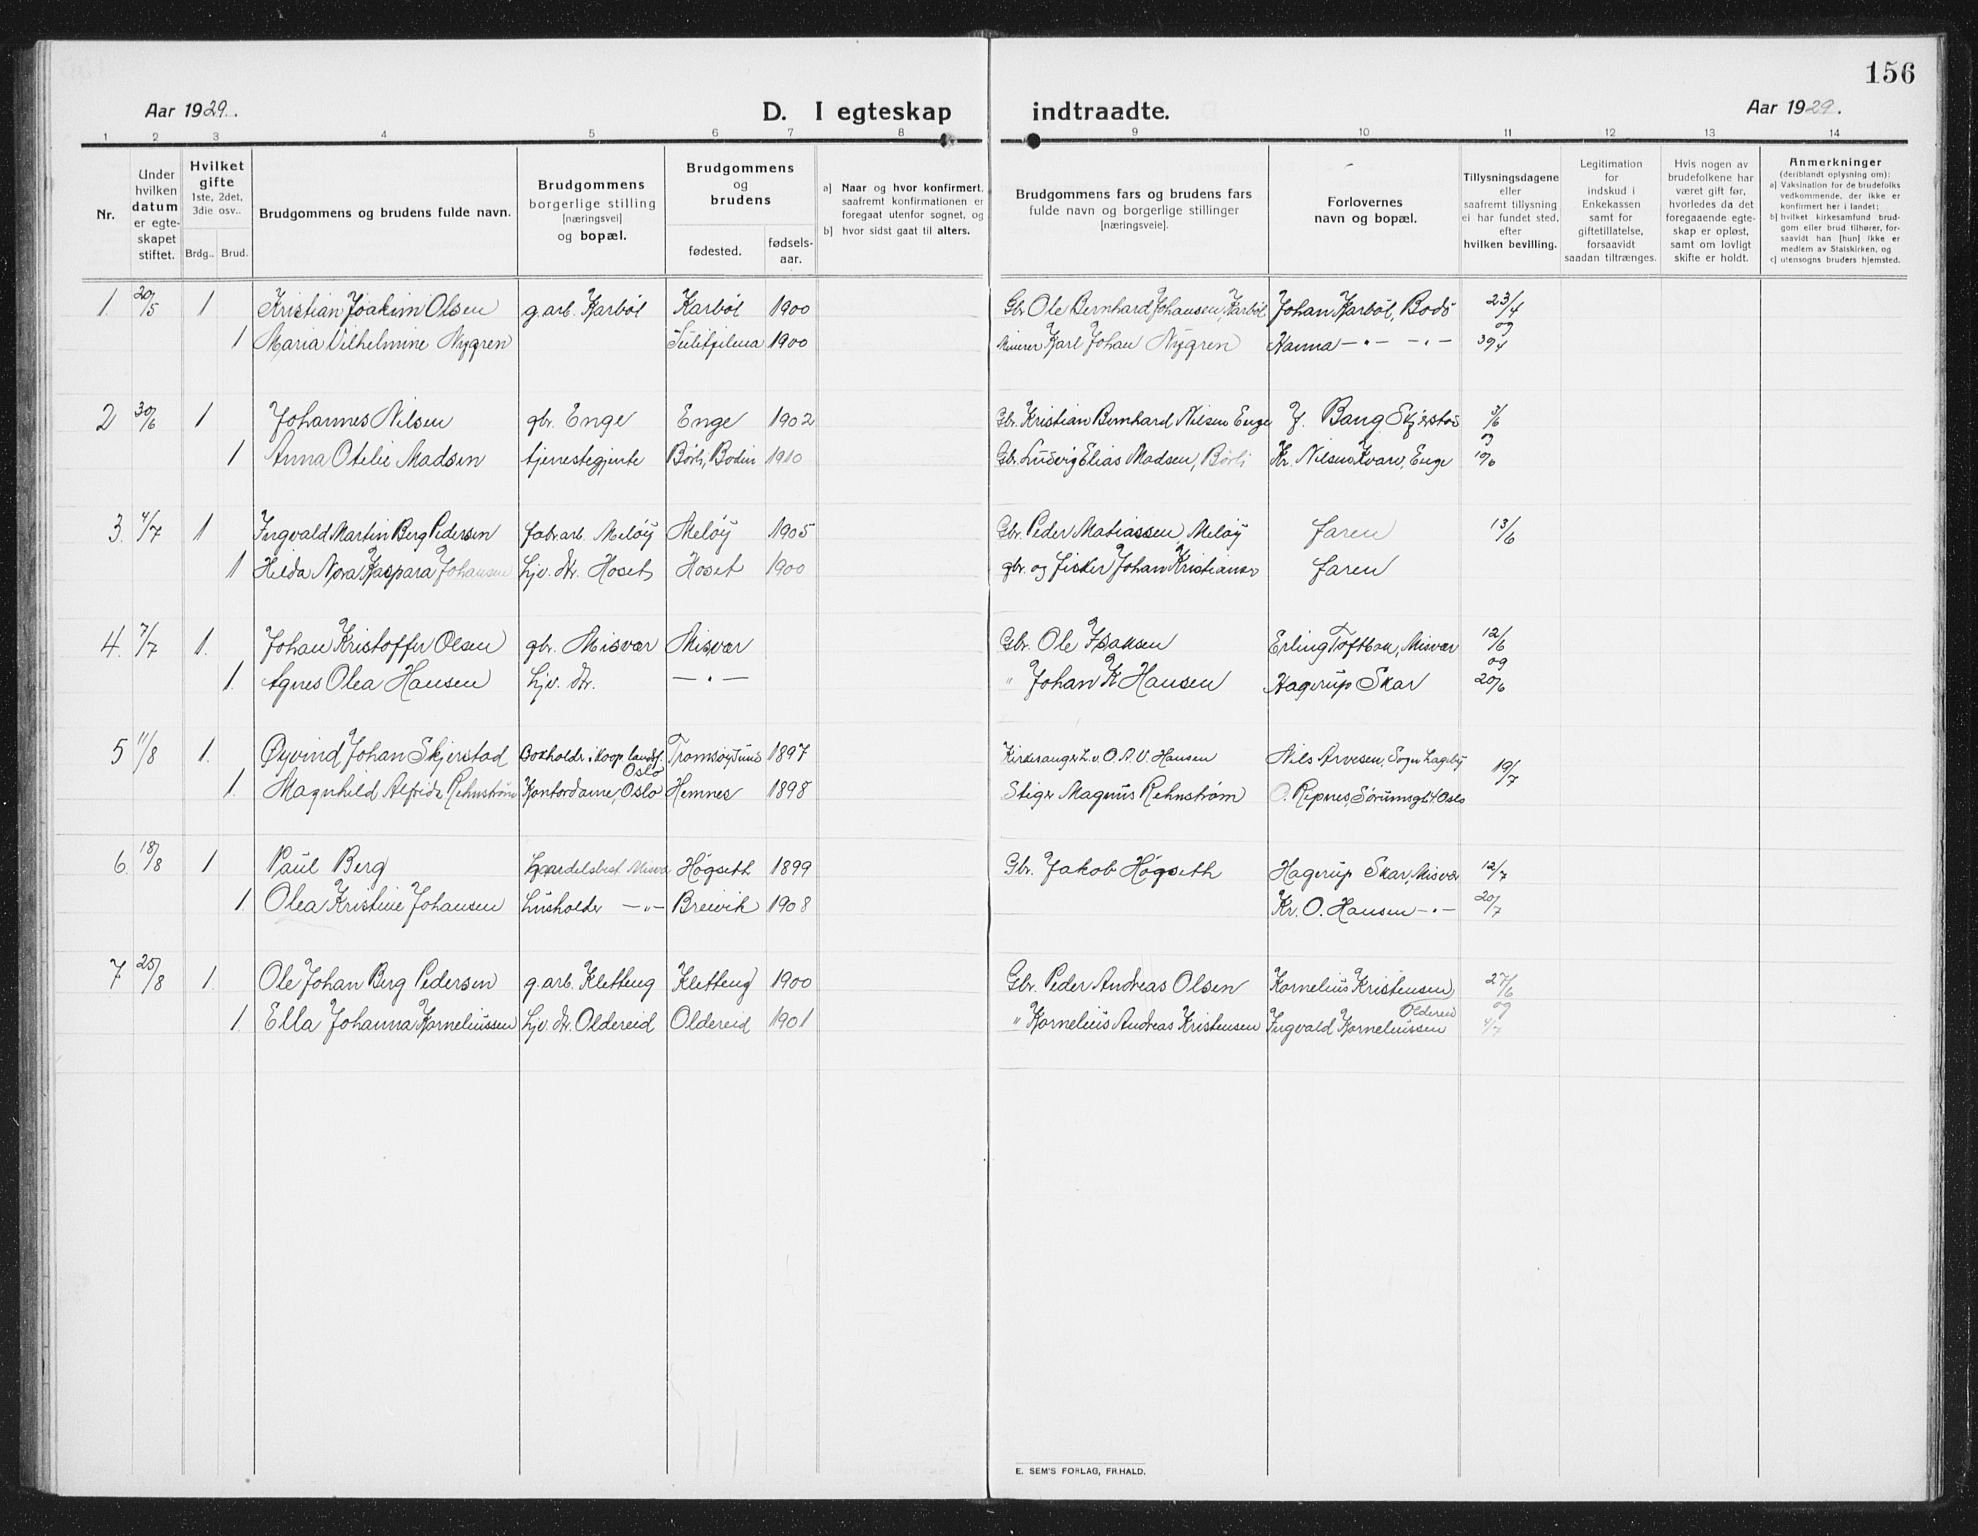 156
Aar 1929.
D. I egteskap indtraadte.
Aar 1929.
1 2 3 4 5 6 7 8 9 10 11 12 13 14
Nr.
Under hvilken datum er egteskapet stiftet.
Hvilket gifte 1ste, 2det, 3die osv..
Brdg.. Brud.
Brudgommens og brudens fulde navn.
Brudgommens borgerlige stilling [næringsvei] og bopæl.
Brudgommens og brudens
fødested. fødselsaar.
a) Naar og hvor konfirmert, saafremt konfirmationen er foregaat utenfor sognet, og
b) hvor sidst gaat til alters.
Brudgommens fars og brudens fars fulde navn og borgerlige stillinger [næringsveie].
Forlovernes navn og bopæl.
Tillysningsdagene eller saafremt tillysning ei har fundet sted, efter hvilken bevilling.
Legitimation for indskud i Enkekassen samt for giftetillatelse, forsaavidt saadan tiltrænges.
Hvis nogen av brudefolkene har været gift før, hvorledes da det foregaaende egteskap er opløst, samt om lovligt skifte er holdt.
Anmerkninger (deriblandt oplysning om):
a) Vaksination for de brudefolks vedkommende, der ikke er konfirmert her i landet;
b) hvilket kirkesamfund brudgom eller brud tilhører, forsaavidt han [hun] ikke er medlem av Statskirken, og
c) utensogns bruders hjemsted.
1. 20/5 1 Kristian Joakim Olsen g.arb. Karbøl Karbøl 1900 Gbr. Ole Bernhard Johansen, Karbøl Johan Karbøl, Bodø 23/4 og
1 Maria Vilhelmine Nygren Sulitjelma 1900 Minerer Karl Johan Nygren Hanna -"- -"- 30/4
2 30/6 1 Johannes Nilsen gbr. Enge Enge 1902 Gbr. Kristian Bernhard Nilsen Enge J. Bang Skjerstad 3/6 og
1 Anna Otelie Madsen tjenestegjente Børli, Bodin 1910 Gbr. Ludvig Elias Madsen, Børli Kr. Nilsen Kvarv, Enge 10/6
3. 4/7 1 Ingvald Martin Berg Pedersen fabr.arb. Meløy Meløy 1905 Gbr. Peder Matiassen, Meløy faren 13/6
1 Hilda Nora Kaspara Johansen hjv. dtr. Hoset Hoset 1900 gbr. og fisker Johan Kristians. faren
4. 7/7 1. Johan Kristoffer Olsen gbr. Misvær Misvær Gbr. Ole Isaksen Erling Toftbak, Misvær 12/6 og
1. Agnes Olea Hansen hjv. dtr. -"- " Johan K Hansen Hagerup Skar 20/6
5 11/8 1. Øyvind Johan Skjerstad Bokholder i koop. landsf. Oslo Tromsøysund 1897 Kirkesanger L. v. O. A. V. Hansen Nils Arvesen, Sogn Hageby 19/7
1. Magnhild Alfrida Rehnstrøm Kontordame, Oslo Hemnes 1898 Stiger Magnus Rehnstrøm O. Ripnes, Sørumsgt. 4. Oslo
6. 18/8 1 Paul Berg Handelsbest. Misvær Høgseth 1899 Gbr. Jakob Høgseth Hagerup Skar, Misvær 12/7
1. Olea Kristine Johansen Husholder -"- Breivik 1908 Kr. O. Hansen -"- 20/7
7 25/8 1. Ole Johan Berg Pedersen g.arb. Kletteng Kletteng 1900 Gbr. Peder Andreas Olsen Kornelius Kristensen Oldereid 27/6 og
1. Ella Johanna Korneliussen hjv. dtr. Oldereid Oldereid 1901 " Kornelius Andreas Kristensen Ingvald Korneliussen 4/7
E. SEM'S FORLAG, FR.HALD.